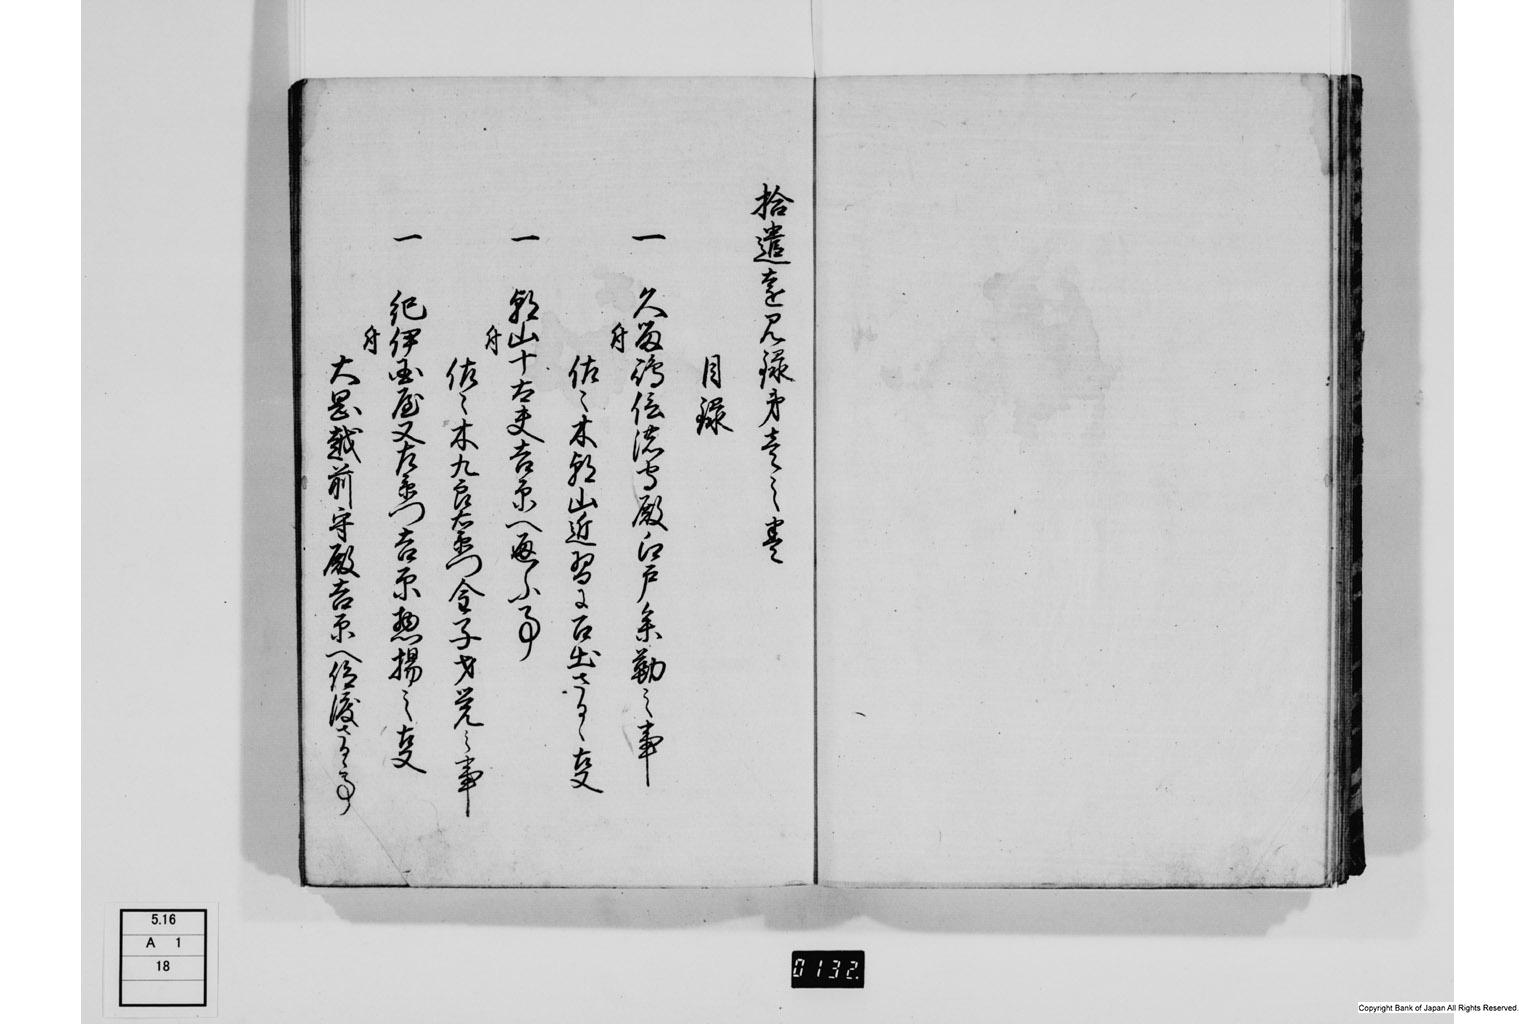 拾遺遠見録第壱之巻
目録
一 久留嶋信濃守殿江戸参勤之事
并
佐々木郡山近習に召出さるゝ事
一 郡山十太夫吉原へ通ふ事
并
佐々木九郎右衛門金子才覚之事
一 紀伊国屋文左衛門吉原惣揚之事
并
大岡越前守殿吉原へ被渡さるゝ事
5.16
A 1
18
0132.
Copyright Bank of Japan All Rights Reserved.